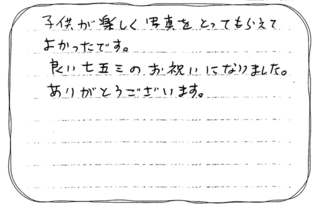 子供が楽しく写真をとってもらえて
よかったです。
良い七五三のお祝いになりました。
ありがとうございます。